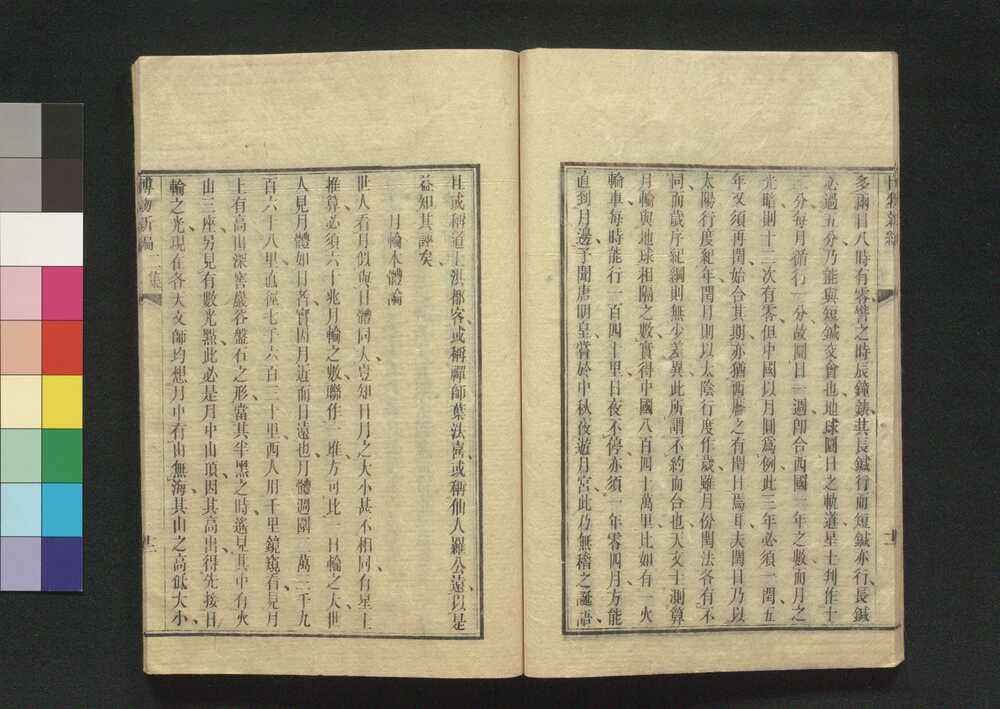 多兩日八時有零譬之時辰鐘錶其長鍼行而短鍼亦行長鍼
必過五分乃能與短鍼交會也地球圜日之軌道星士判作十
二分每月循行一分故圜日一週卽合西國一年之數而月之
光暗則十二次有零但中國以月圓爲例此三年必須一閏五
年又須再閏始合其期亦猶西曆之有閏日焉耳夫閏日乃以
太陽行度紀年閏月則以太陰行度作歲雖月份閏法各有不
同而歲序紀綱則無少差異此所謂不約而合也天文士測算
月輪與地球相隔之數實得中國八百四十萬里比如有一火
輪車每時能行一百四十里日夜不停亦須一年零四月方能
直到月邊予聞唐明皇嘗於中秋夜遊月宮此乃無稽之誕語
且或稱道士洪都客或稱禪師葉法喜或稱仙人羅公遠以是
益知其誣矣
月輪本體論
世人看月似與日體同大豈知日月之大小甚不相同有星士
推算必須六十兆月輪之數聯作一堆方可比一日輪之大世
人見月體如日者實因月近而日遠也月體週圍二萬二千九
百六十八里直徑七千六百三十里西人用千里鏡窺看見月
上有高山深窖巖谷盤石之形當其半黑之時遙見其中有火
山三座另見有數光點此必是月中山頂因其高出得先接日
輪之光現在各天文師均想月中有山無海其山之高低大小
博物新編二集
十二